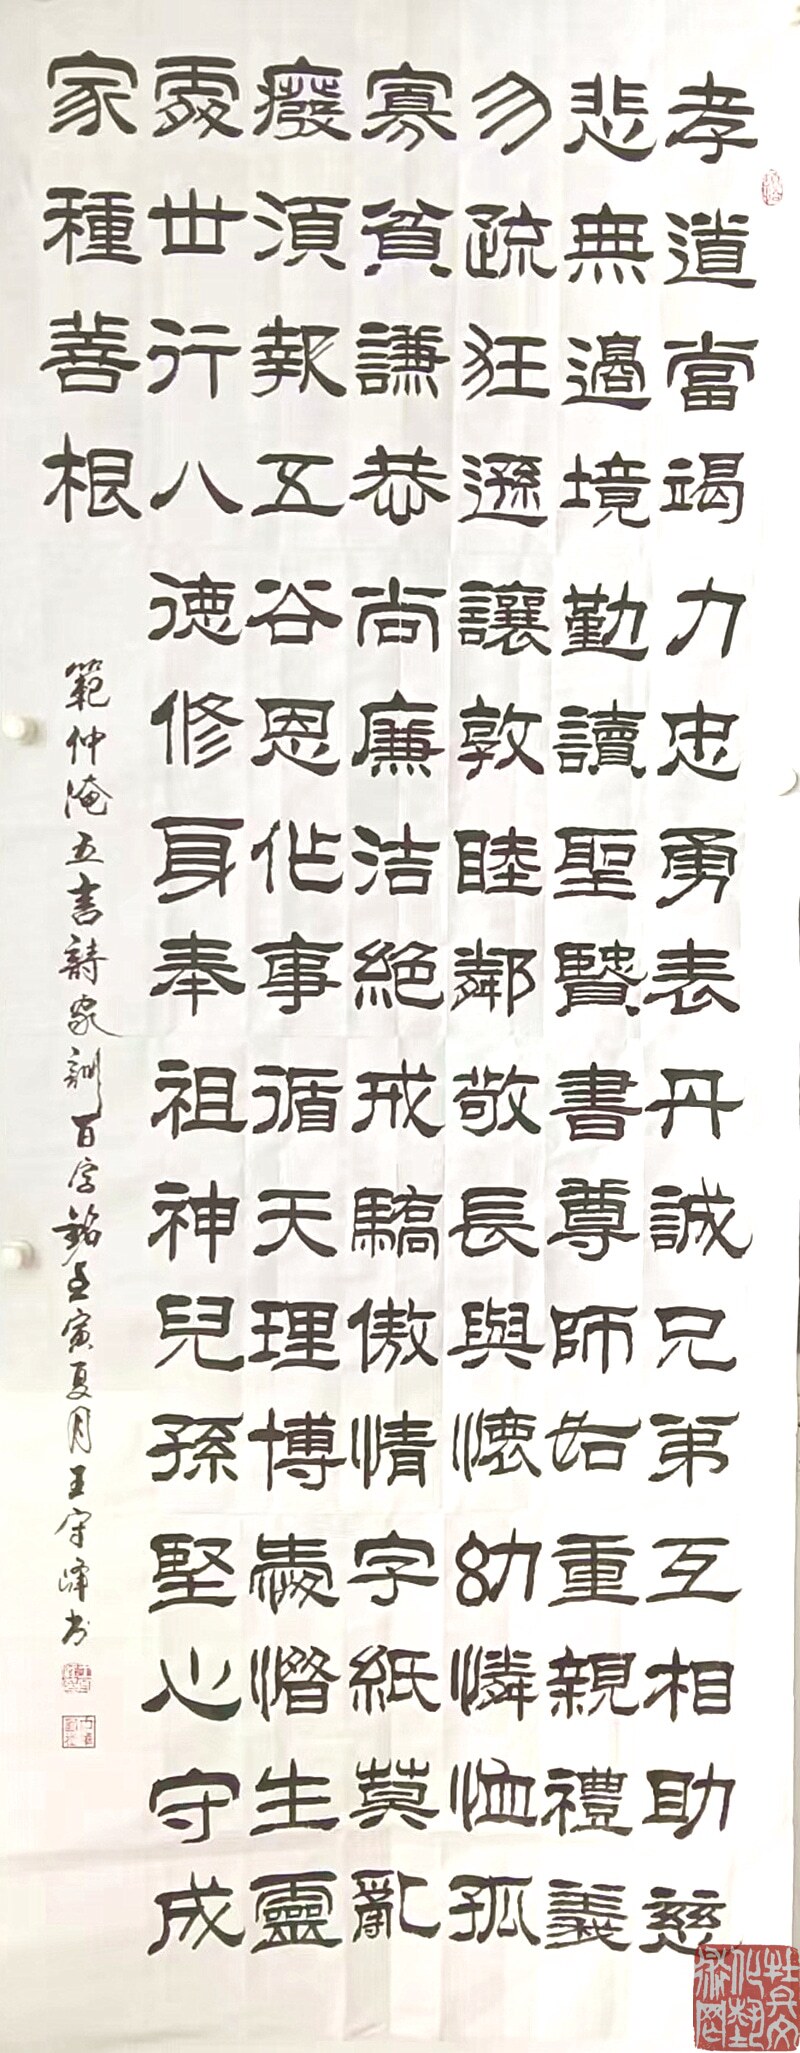 孝道當竭力忠勇表丹誠兄弟互相助慈
悲無邊境勤讀聖賢書尊師如重親禮義
勿疏狂遜讓敦睦鄰敬長與懷幼憐恤孤
寡貧謙恭尚廉洁絕戒驕傲情字紙莫亂
癈須報五谷恩作事循天理博愛惜生靈
處世行八德修身奉祖神兒孫堅心守成
家種善根
範仲淹五言詩家訓百字銘壬寅夏月王守峰書